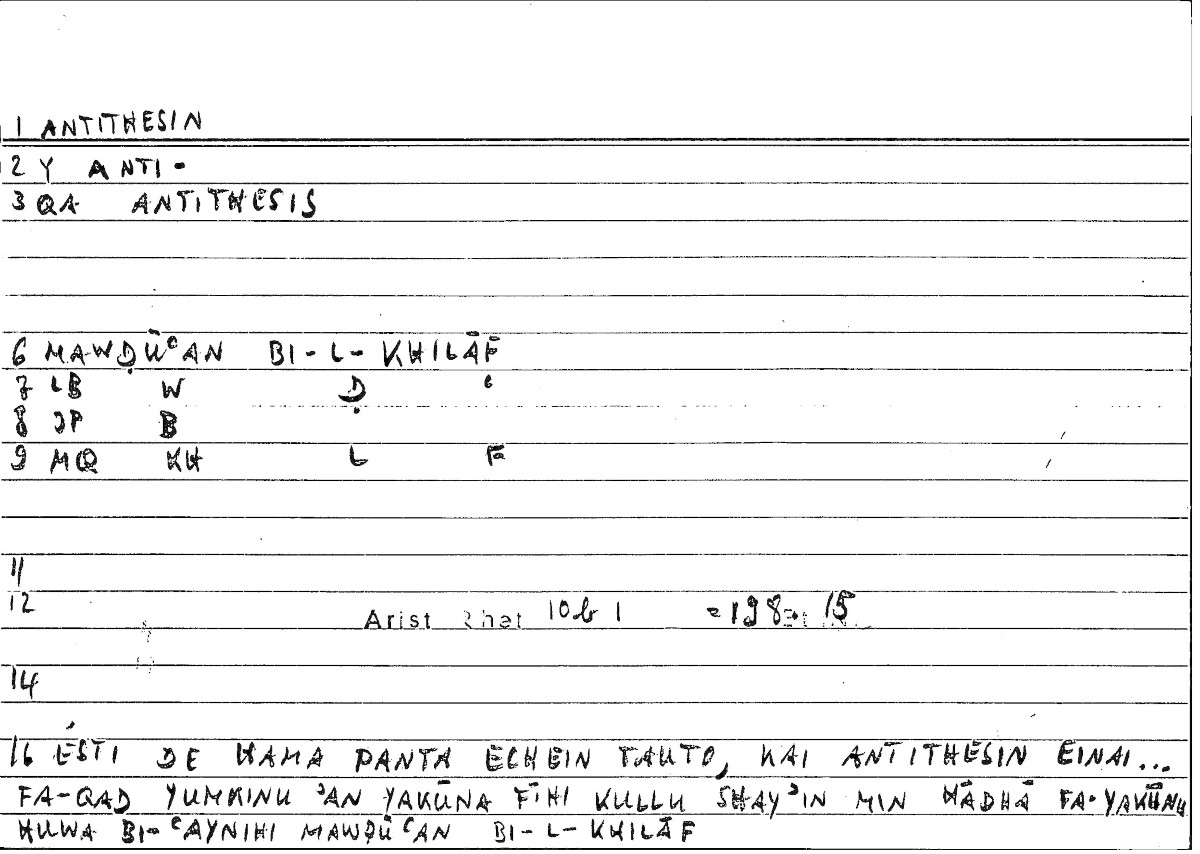 1 ANTITHESIN
2 Y ANTI-
3 QA ANTITHESIS
6 MAWḌŪʿAN BI-L-KHILĀF
7 LB W Ḍ ʿ
8 JP B
9 MQ KH L F
11
12 Arist Rhet 10b 1 = 198 15
14
16 ÉSTI DE HAMA PANTA ECHEIN TAUTO, KAI ANTITHESIN EINAI...
FA-QAD YUMKINU ʾAN YAKŪNA FĪHI KULLU SHAYʾIN MIN HĀDHĀ FA-YAKŪNU
HUWA BI-ʿAYNIHI MAWḌŪʿAN BI-L-KHILĀF